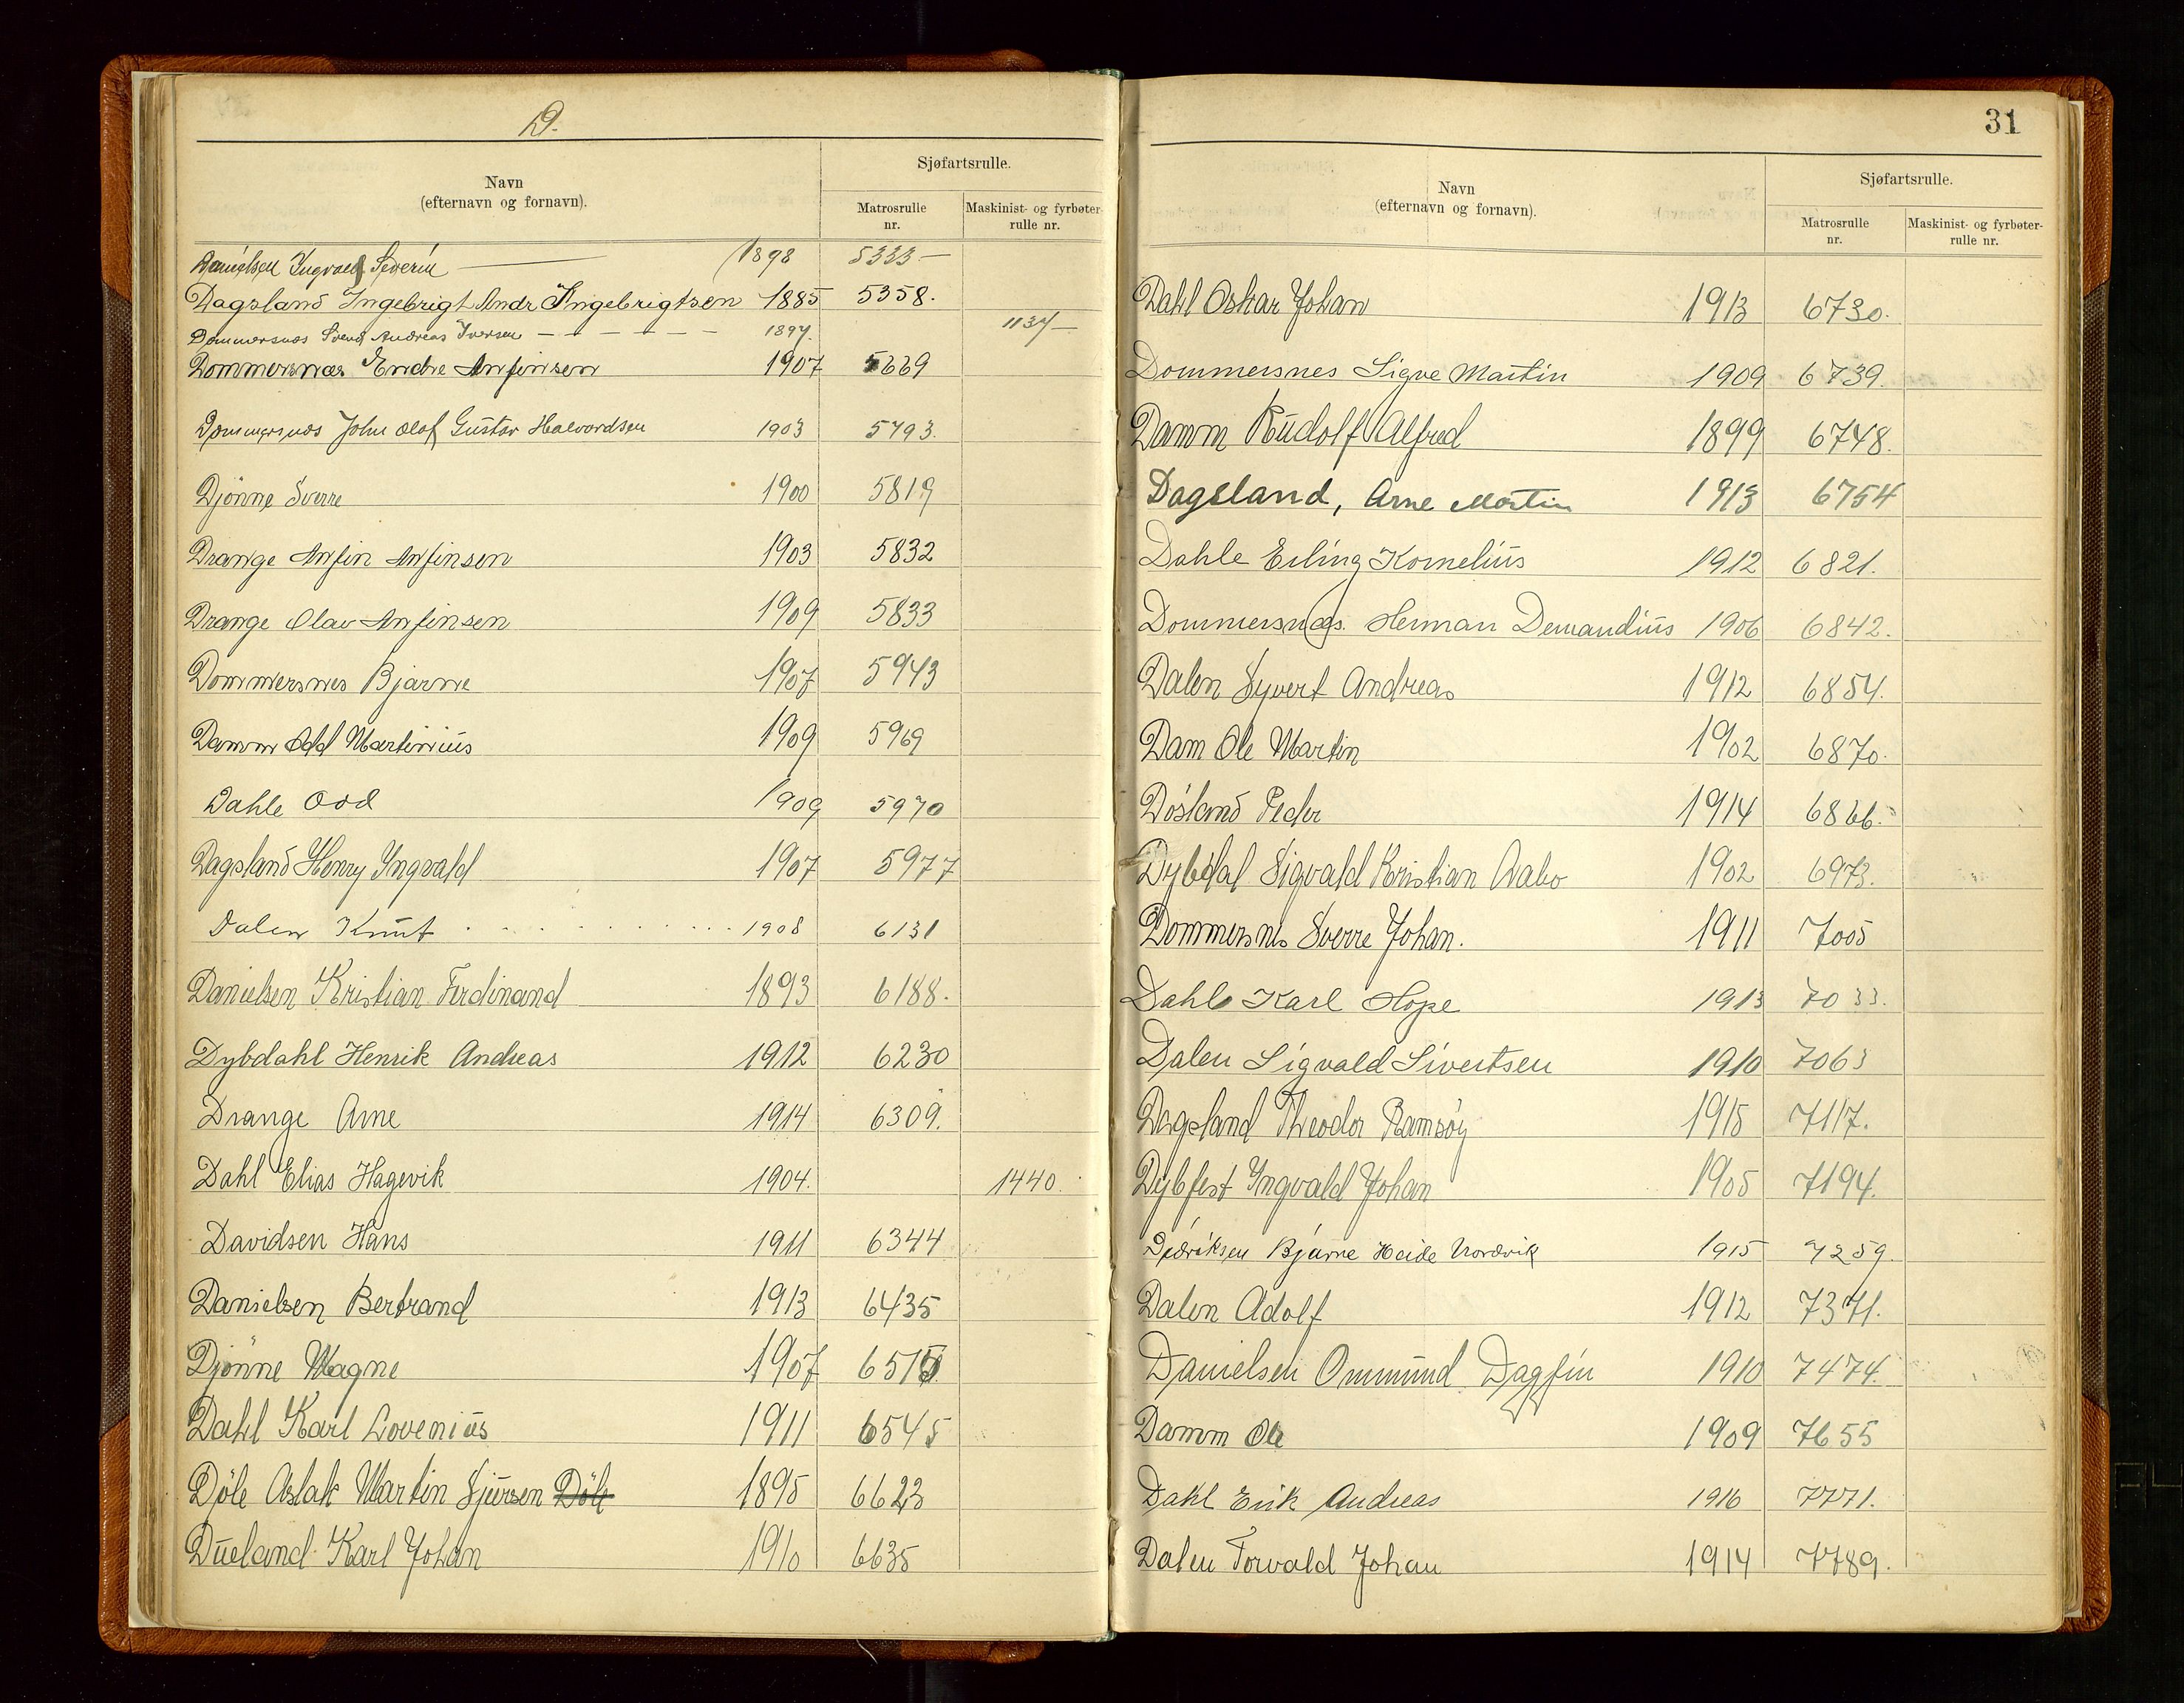 D.
Navn
(efternavn og fornavn).
Sjøfartsrulle.
Matrosrulle
nr.
Maskinist- og fyrbøter-
rulle nr.
Danielsen Ingvald Severin 1898 5333 —
Dagsland Ingebrigt Andr Ingebrigtsen 1885 5358.
Dommersnæs Svend Andreas Iversen — — — — — 1897. 1137 —
Dommersnæs Endre Anfinsen 1907 5669
Dommersnæs John Olaf Gustav Halvordsen 1903 5793.
Djönne Sverre 1900 5819
Drange Anfin Anfinsen 1903 5832
Drange Olav Anfinsen 1909 5833
Dommersnes Bjarne 1907 5943
Damm Odd Martinius 1909 5969
Dahle Odd 1909 5970
Dagsland Henry Ingvald 1907 5977
Dalen Knut 1908 6131
Danielsen Kristian Ferdinand 1893 6188.
Dybdahl Henrik Andreas 1912 6230
Drange Arne 1914 6309.
Dahl Elias Hagevik 1904. 1440.
Davidsen Hans 1911 6344
Danielsen Bertrand 1913 6435
Djönne Magne 1907
Dahl Karl Lovenius 1911 6545
Döle Aslak Martin Sjursen Döle 1895 6623
Dueland Karl Johan 1910 6635
31
Navn
(efternavn og fornavn).
Sjøfartsrulle.
Matrosrulle
nr.
Maskinist- og fyrbøter-
rulle nr.
Dahl Oskar Johan 1913 6730.
Dommersnes Sigve Martin 1909 6739.
Damm Rudolf Alfred 1899 6748.
Dagsland, Arne Martin 1913 6754
Dahle Erling Kornelius 1912 6821.
Dommersnæs. Herman Demandius 1906 6842.
Dalen Syvert Andreas 1912 6854.
Dam Ole Martin 1902 6870.
Dösland Peder 1914
Dybdal Sigvald Kristian Aabo 1902 6973.
Dommersnes Sverre Johan. 1911 7005
Dahle Karl Hope 1913 7033.
Dalen Sigvald Sivertsen 1910 7063
Dagsland Theodor Ramsöy 1915 7117.
Dybfest Ingvald Johan 1905 7194.
Didriksen Bjarne Heide Nordvik 1915 7259.
Dalen Adolf 1912 7371.
Danielsen Ommund Dagfin 1910 7474.
Damm Ole 1909 7655
Dahl Erik Andreas 1916 7771.
Dalen Torvald Johan 1914 7789.